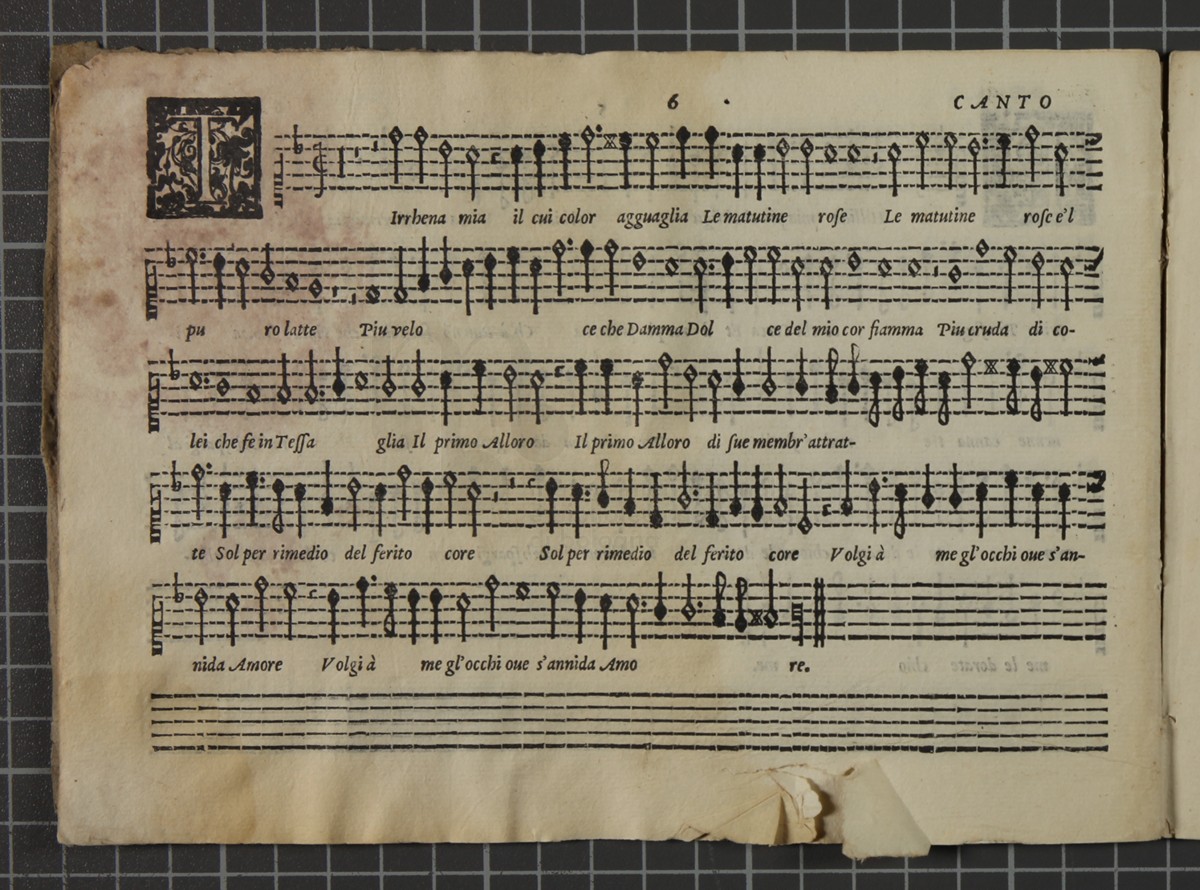 6 CANTO
T
Irrhena mia il cui color agguaglia Le matutine roſe Le matutine roſe e'l
pu ro latte Piu velo ce che Damma Dol ce del mio cor fiamma Piu cruda di co-
lei che fe in Teſſa glia Il primo Alloro Il primo Alloro di ſue membr' attrat-
te Sol per rimedio del ferito core Sol per rimedio del ferito core Volgi à me gl'occhi oue s'an-
nida Amore Volgi à me gl'occhi oue s'annida Amo re.